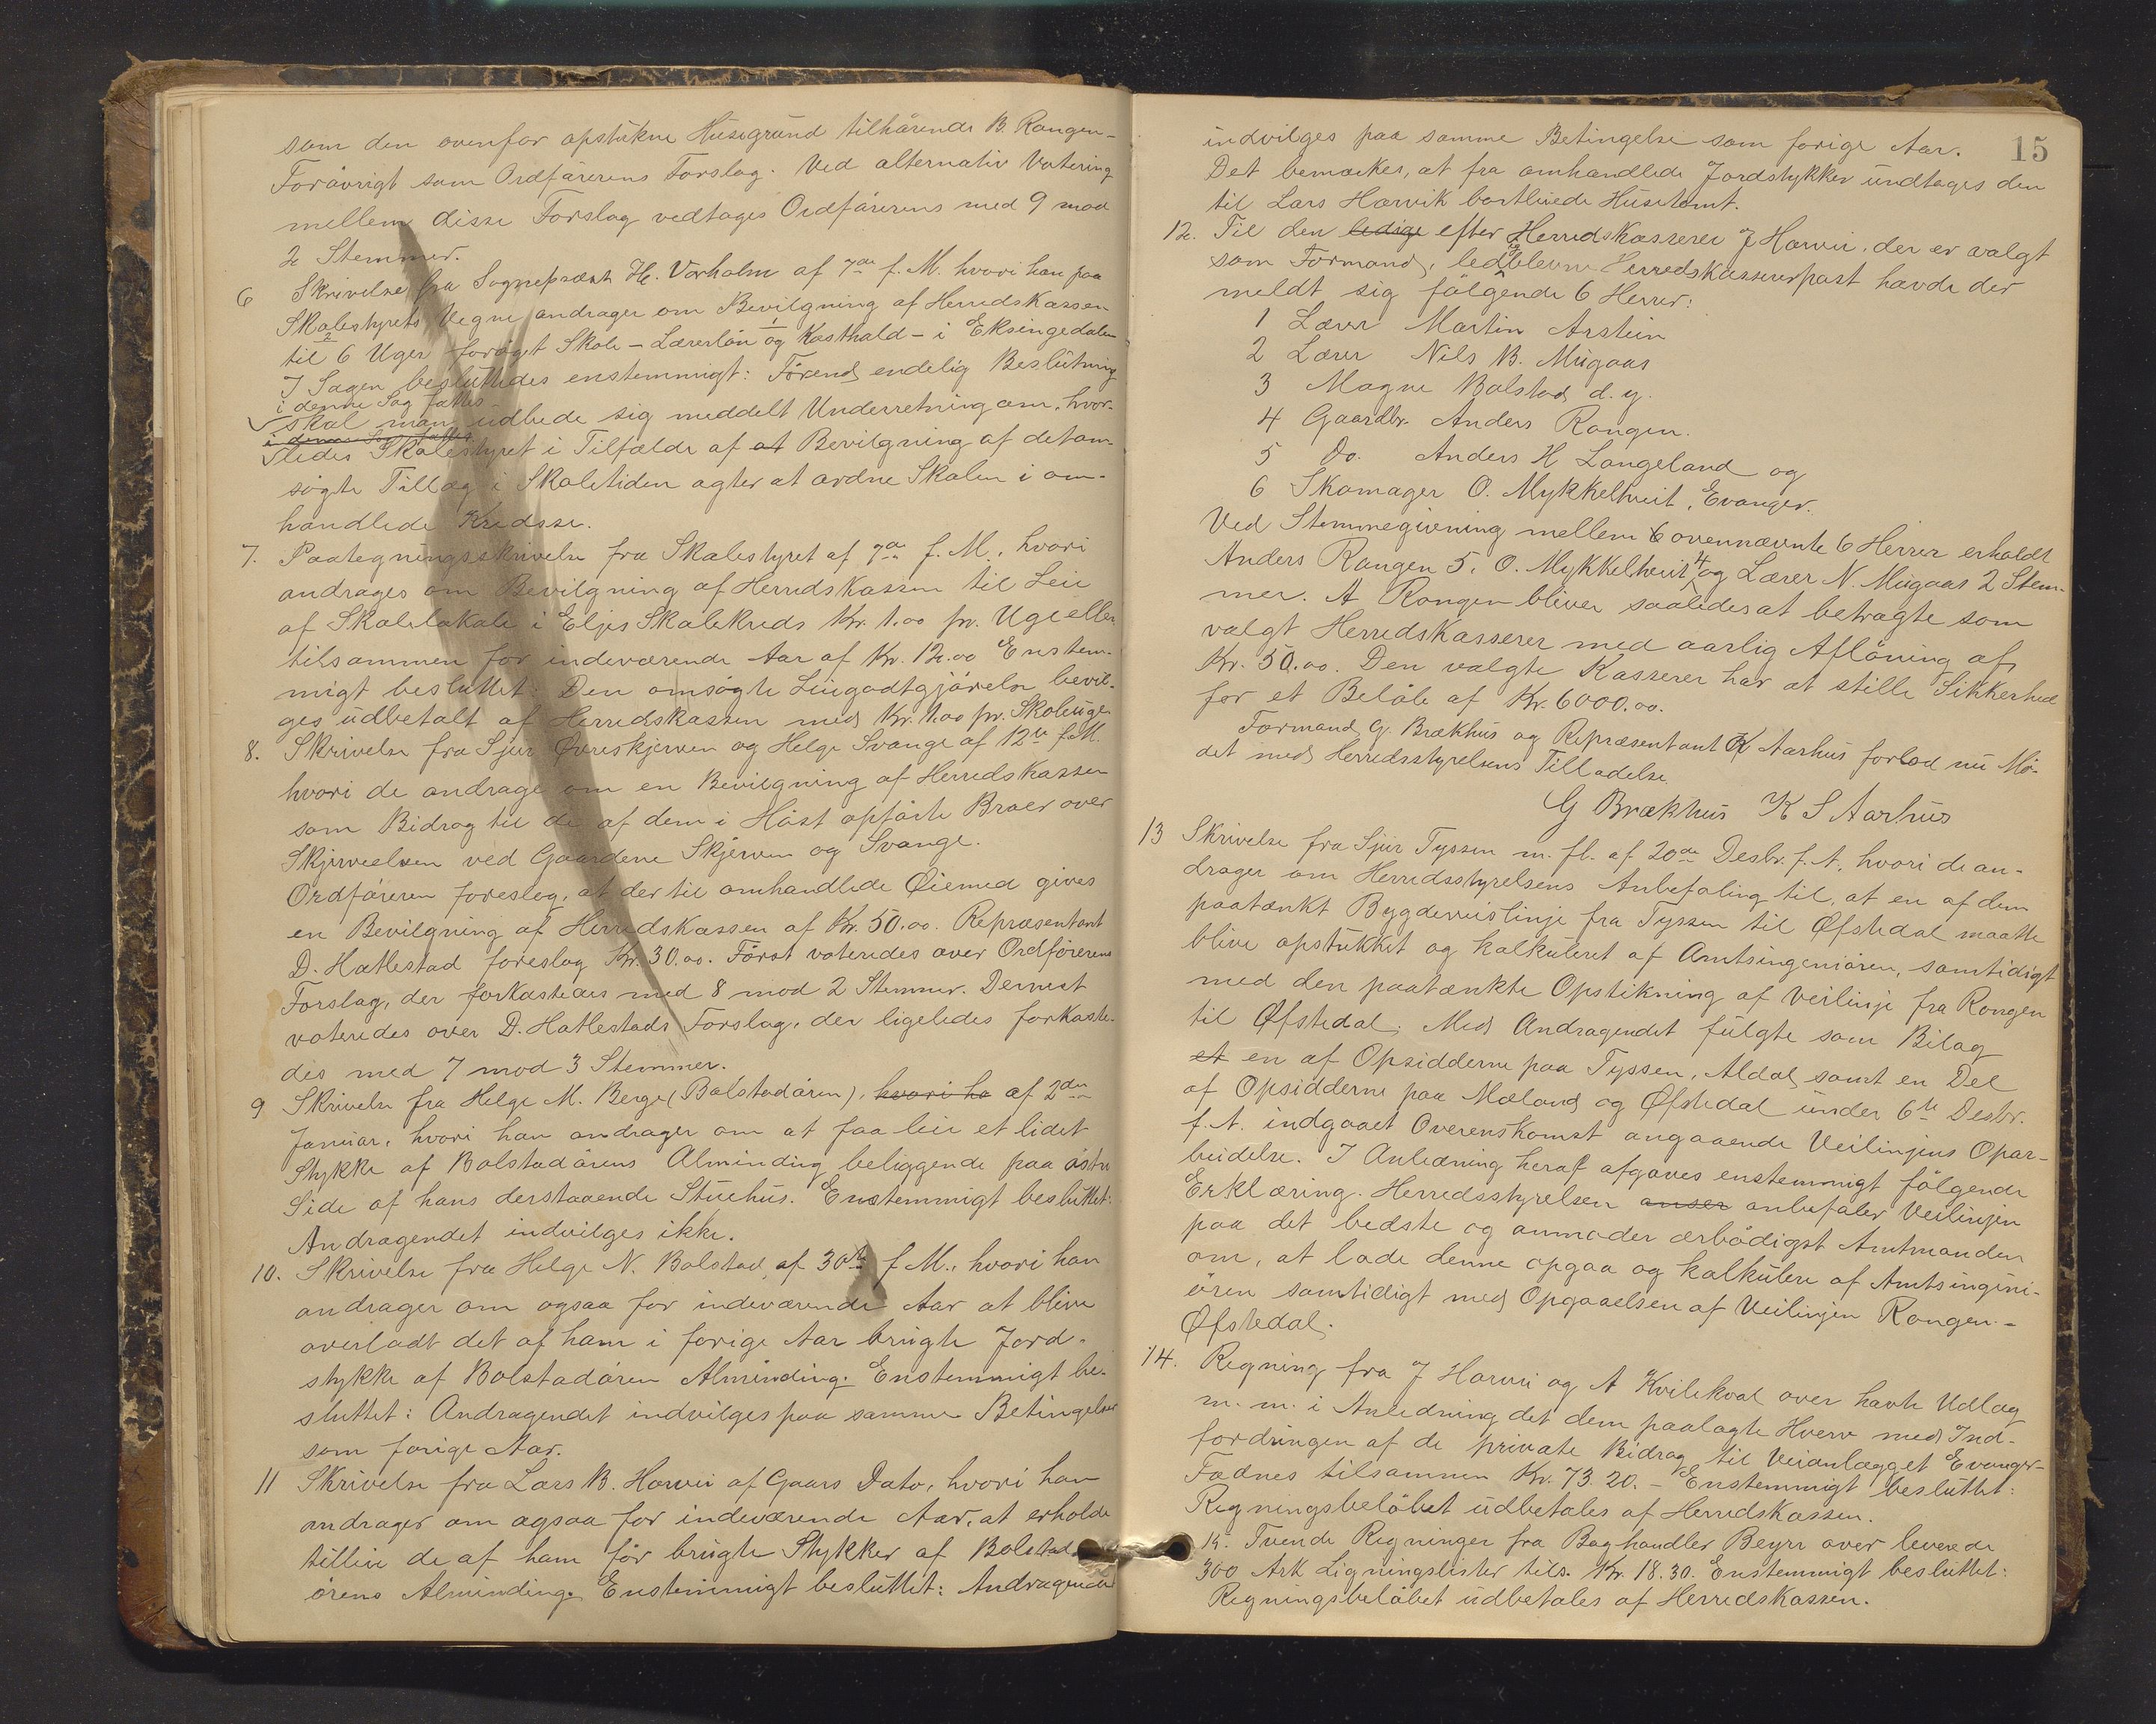 som den ovenfor opstukne Husegrund tilhörende B. Rongen -
Forövrigt som Ordförerens Forslag. Ved alternativ Votering
mellem disse Forslag vedtoges Ordförerens med 9 mod
2 Stemmer.
6 Skrivelse fra Sogneprest H. Vorholm af 7de f. M. hvori han paa
Skolestyrets Vegne andrager om Bevilgning af Herredskassen
til 6 Uger forøget Skole - Lærerlön og Kosthold - i Eksingedalen
I Sagen besluttedes enstemmigt: Förend endelig Beslutning
i denne Sag fattes
skal man udbede sig meddelt Underretning om, hvor-
i denne Sag fattes
ledes Skolestyret i Tilfælde af at Bevilgning af det om-
søgte Tillæg i Skoletiden agter at ordne Skolen i om-
handlede Kredse.
7. Paategningsskrivelse fra Skolestyret af 7de f. M., hvori
andrages om Bevilgning af Herredskassen til Leie
af Skolelokale i Eljes Skolekreds Kr. 1.00 pr. Uge eller
tilsammen for indeværende Aar af Kr. 12.00 Enstem-
migt besluttet: Den omsøgte Leiegodtgjörelse bevil-
ges udbetalt af Herredskassen med Kr. 1.00 pr. Skoleuge.
8. Skrivelse fra Sjur Øvreskjerven og Helge Svange af 12te f. M.
hvori de andrage om en Bevilgning af Herredskassen
som Bidrag til de af dem i Höst opförte Broer over
Skjerveelven ved Gaardene Skjerven og Svange.
Ordföreren foreslog, at der til omhandlede Øiemed gives
en Bevilgning af Herredskassen af Kr. 50.00. Repræsentant
D. Hatlestad foreslog Kr. 30.00. Först voteredes over Ordförerens
Forslag, der forkastedes med 8 mod 2 Stemmer. Dernest
voteredes over D. Hatlestads Forslag, der ligeledes forkaste-
des med 7 mod 3 Stemmer.
9 Skrivelse fra Helge M. Berge (Bolstadören), hvori ha af 2den
Januar, hvori han andrager om at faa leie et lidet
Stykke af Bolstadörens Alminding beliggende paa östre
Side af hans derstaaende Stuehus. Enstemmigt besluttet:
Andragendet indvilges ikke.
10. Skrivelse fra Helge N. Bolstad af 30te f M., hvori han
andrager om ogsaa for indeværende Aar at blive
overladt det af ham i forige Aar brugte Jord-
stykke af Bolstadören Alminding. Enstemmigt be-
sluttet: Andragendet indvilges paa samme Betingelse
som forige Aar.
11 Skrivelse fra Lars B. Horvei af Gaars Dato, hvori han
andrager om ogsaa for indeværende Aar, at erholde
tilleie de af ham för brugte Stykker af Bolstad
örens Alminding. Enstemmigt besluttet: Andragendet
15
indvilges paa samme Betingelse som forige Aar.
Det bemærkes, at fra omhandlede Jordstykker undtages den
til Lars Horvik bortleiede Husetomt.
12. Til den ledige efter Herredskasserer J Horvei, der er valgt
som Formand, ledigblevne Herredskassererpost havde der
meldt sig fölgende 6 Herrer:
1 Lærer Martin Arstein
2 Lærer Nils B. Mugaas
3 Magne Bolstad d. y.
4 Gaardbr. Anders Rongen.
5 Do. Anders H Langeland og
6 Skomager O. Mykkeltveit, Evanger.
Ved Stemmegivning mellem 6 ovennævnte 6 Herrer erholdt
Anders Rongen 5, O. Mykkeltveit 4 og Lærer N. Mugaas 2 Stem-
mer. A Rongen bliver saaledes at betragte som
valgt Herredskasserer med aarlig Aflöning af
Kr. 50.00. Den valgte Kasserer har at stille Sikkerhed
for et Belöb af Kr. 6000.00.
Formand G. Brækhus og Repræsentant K Aarhus forlod nu Mö-
det med Herredsstyrelsens Tilladelse.
G Brækhus K S Aarhus
13 Skrivelse fra Sjur Tyssen m. fl. af 20de Desbr. f. A., hvori de an-
drager om Herredsstyrelsens Anbefaling til, at en af dem
paatænkt Bygdeveislinje fra Tyssen til Øfstedal maatte
blive opstukket og kalkuleret af Amtsingeniören, samtidigt
med den paatænkte Opstikning af Veilinje fra Rongen
til Øfstedal. Med Andragendet fulgte som Bilag
et en af Opsidderne paa Tyssen, Aldal samt en Del
af Opsidderne paa Mæland og Øfstedal under 6te Desbr.
f. A. indgaaet Overenskomst angaaende Veilinjens Opar-
beidelse. I Anledning heraf afgaves enstemmigt fölgende
Erklæring. Herredsstyrelsen anser anbefaler Veilinjen
paa det bedste og anmoder ærbödigst Amtmanden
om, at lade denne opgaa og kalkulere af Amtsingeni-
ören samtidigt med Opgaaelsen af Veilinjen Rongen -
Øfstedal.
14. Regning fra J Horvei og A Kvilekval over havte Udlæg
m. m. i Anledning det dem paalagte Hverv med Ind-
fordringen af de private Bidrag til Veianlægget Evanger-
Fadnes tilsammen Kr. 73.20. - Enstemmigt besluttet:
Regningsbelöbet udbetales af Herredskassen.
15. Tvende Regninger fra Boghandler Beyer over leverede
300 Ark Ligningslister tils. Kr. 18.30. Enstemmigt besluttet:
Regningsbelöbet udbetales af Herredskassen.